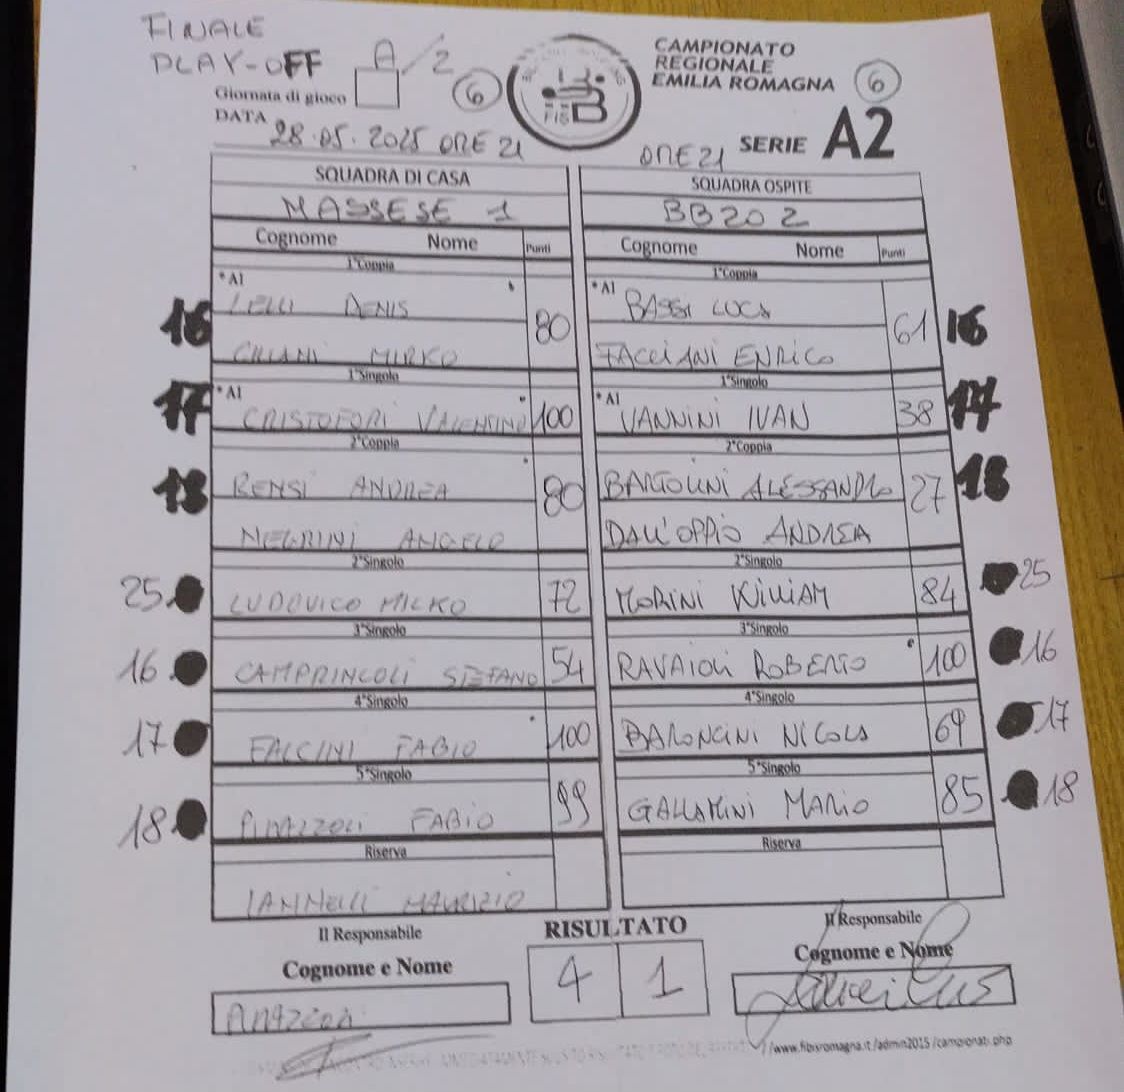 FINALE
PLAY-OFF A/2
Giornata di gioco
6
DATA 28.05.2025 ORE 21
FIS B
CAMPIONATO
REGIONALE
EMILIA ROMAGNA 6
ORE 21 SERIE A2
SQUADRA DI CASA SQUADRA OSPITE
MASSESE 1 BB20 2
Cognome Nome Punti Cognome Nome Punti
1°Coppia 1°Coppia
16 *A1 LELLI DENIS 80 *A1 BASSI LUCA 61 16
MIRKO FACCIANI ENRICO
1°Singolo 1°Singolo
17 *A1 CRISTOFORI VALENTINO 100 *A1 VANNINI IVAN 38 17
2°Coppia 2°Coppia
18 RENSI ANDREA 80 BARTOLINI ALESSANDRO 27 18
NEGRINI ANGELO DALL'OPPIO ANDREA
2°Singolo 2°Singolo
25 LUDOVICO MILKO 72 MORINI WILLIAM 84 25
3°Singolo 3°Singolo
16 CAMPRINCOLI STEFANO 54 RAVAIOLI ROBERTO 100 16
4°Singolo 4°Singolo
17 FALCINI FABIO 100 BARONCINI NICOLA 69 17
5°Singolo 5°Singolo
18 FABIO 99 GALLAMINI MARIO 85 18
Riserva Riserva
IANNELLI MAURIZIO
Il Responsabile RISULTATO Il Responsabile
Cognome e Nome 4 1 Cognome e Nome
//www.fibisromagna.it/admin2015/campionati.php